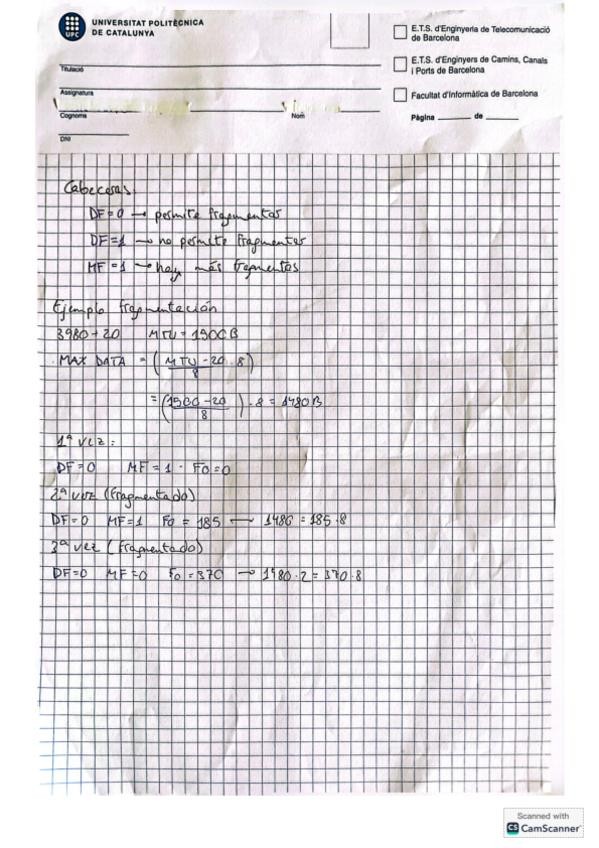 UNIVERSITAT POLITÈCNICA
DE CATALUNYA
UPC
E.T.S. d'Enginyeria de Telecomunicació
de Barcelona
E.T.S. d'Enginyers de Camins, Canals
i Ports de Barcelona
Facultat d'Informàtica de Barcelona
Titulació
Assignatura
Cognoms Nom
Pàgina ______ de ______
DNI
Cabeceras:
DF=0 → permite fragmentos
DF=1 → no permite fragmentos
MF=1 → hay más fragmentos
Ejemplo fragmentación
3980+20 MTU = 1500B
MAX DATA = (MTU - 20 · 8)
8
= (1500-20) · 8 = 1480B
8
1ª vez:
DF=0 MF=1 · FO=0
2ª vez (fragmentado)
DF=0 MF=1 FO=185 → 1480=185·8
3ª vez (fragmentado)
DF=0 MF=0 FO=370 → 1480·2=370·8
Scanned with
CS CamScanner